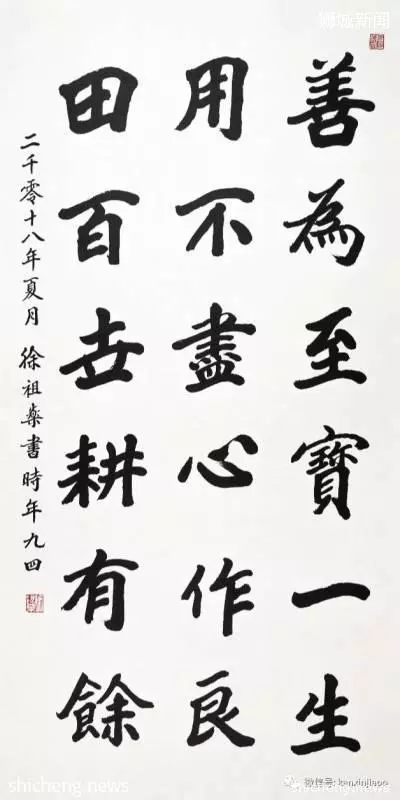 善為至寶一生
用不盡心作良
田百世耕有餘
二千零十八年夏月 徐祖燊書時年九四
狮城新闻
shicheng.news
微信号: kanxinjiapo